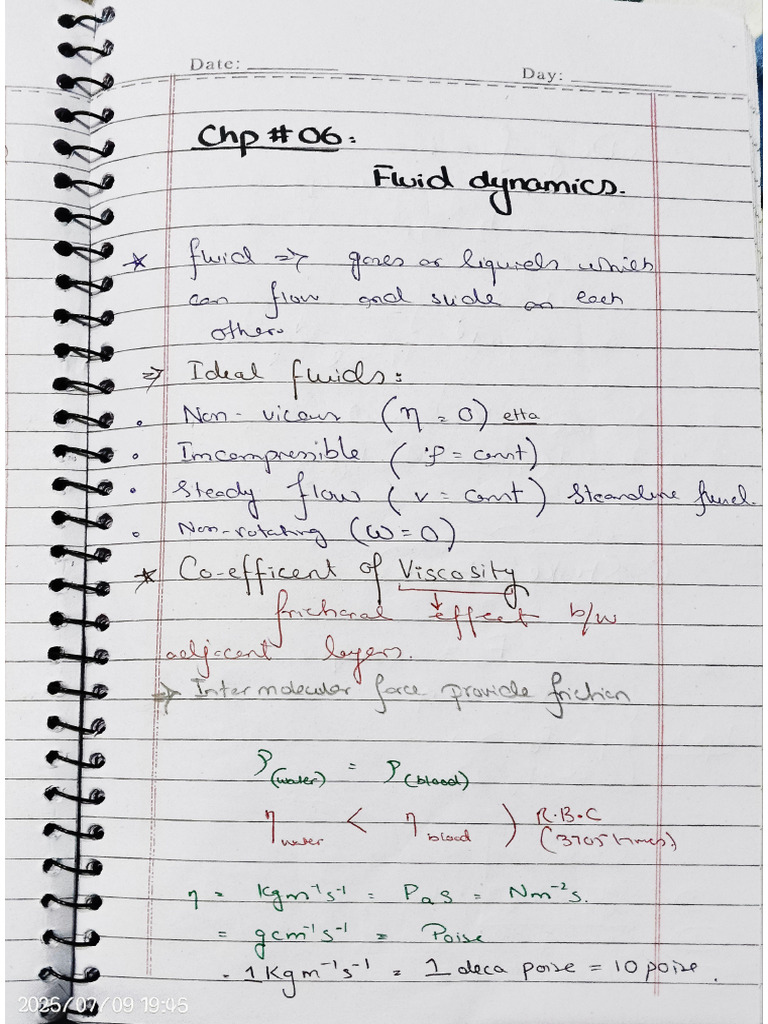 Date: Day:
Chp # 06:
Fluid dynamics.
* fluid ⇒ gases or liquids which
can flow and slide on each
other.
⇒ Ideal fluids:
• Non-vicous (η = 0) etta
• Imcompressible (ρ = const)
• Steady flow (v = const) Steamline
• Non-rotating (ω = 0)
* Co-efficent of Viscosity
frictional effect b/w
adjacent layers.
→ Intermolecular force provide friction
ρ(water) = ρ(blood)
η water < η blood ) R.B.C
(3 times)
η = Kgm⁻¹s⁻¹ = Pas = Nm⁻²s.
= gcm⁻¹s⁻¹ = Poise
= 1Kgm⁻¹s⁻¹ = 1 deca poise = 10 poise.
2025/07/09 19:45